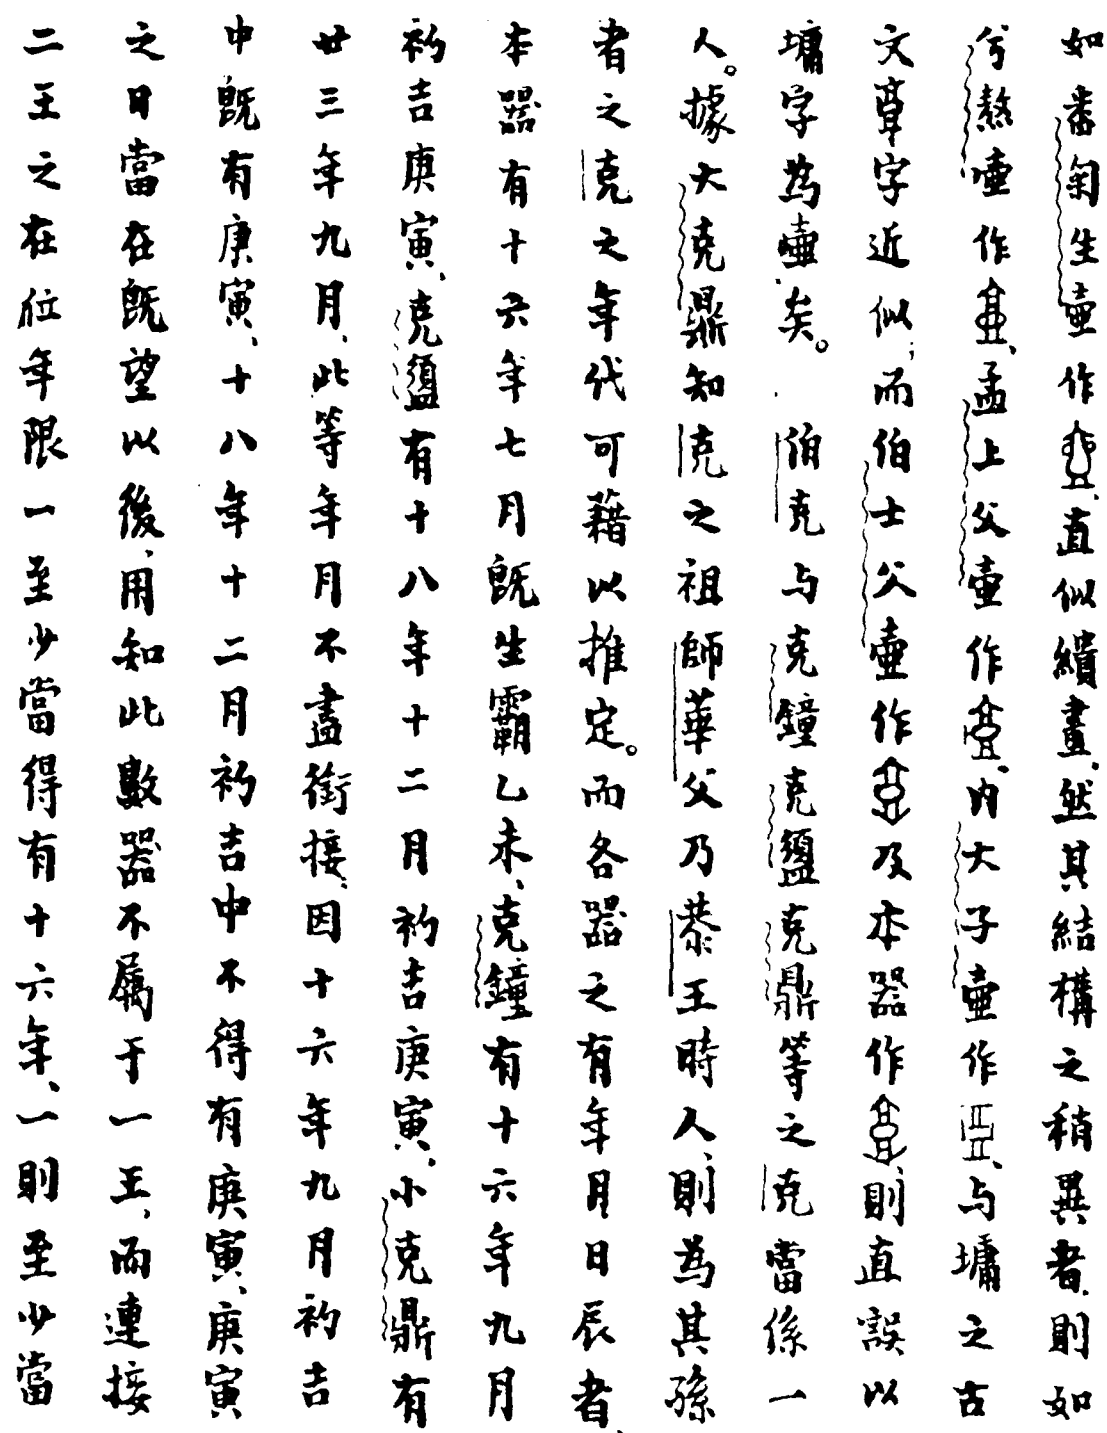 如番匊生壺作、直似繢畫、然其結構之稍異者、則如
兮熬壺作、孟上父壺作、內大子壺作、与墉之古
文𩫖字近似；而伯士父壺作及本器作、則直誤以
墉字為壺矣。　伯克与克鐘克盨克鼎等之克當係一
人。據大克鼎知克之祖師華父乃恭王時人、則為其孫
者之克之年代可藉以推定。而各器之有年月日辰者、
本器有十六年七月既生霸乙未、克鐘有十六年九月
初吉庚寅、克盨有十八年十二月初吉庚寅、小克鼎有
廿三年九月、此等年月不盡銜接；因十六年九月初吉
中既有庚寅、十八年十二月初吉中不得有庚寅、庚寅
之日當在既望以後、用知此數器不屬于一王、而連接
二王之在位年限一至少當得有十六年、一則至少當